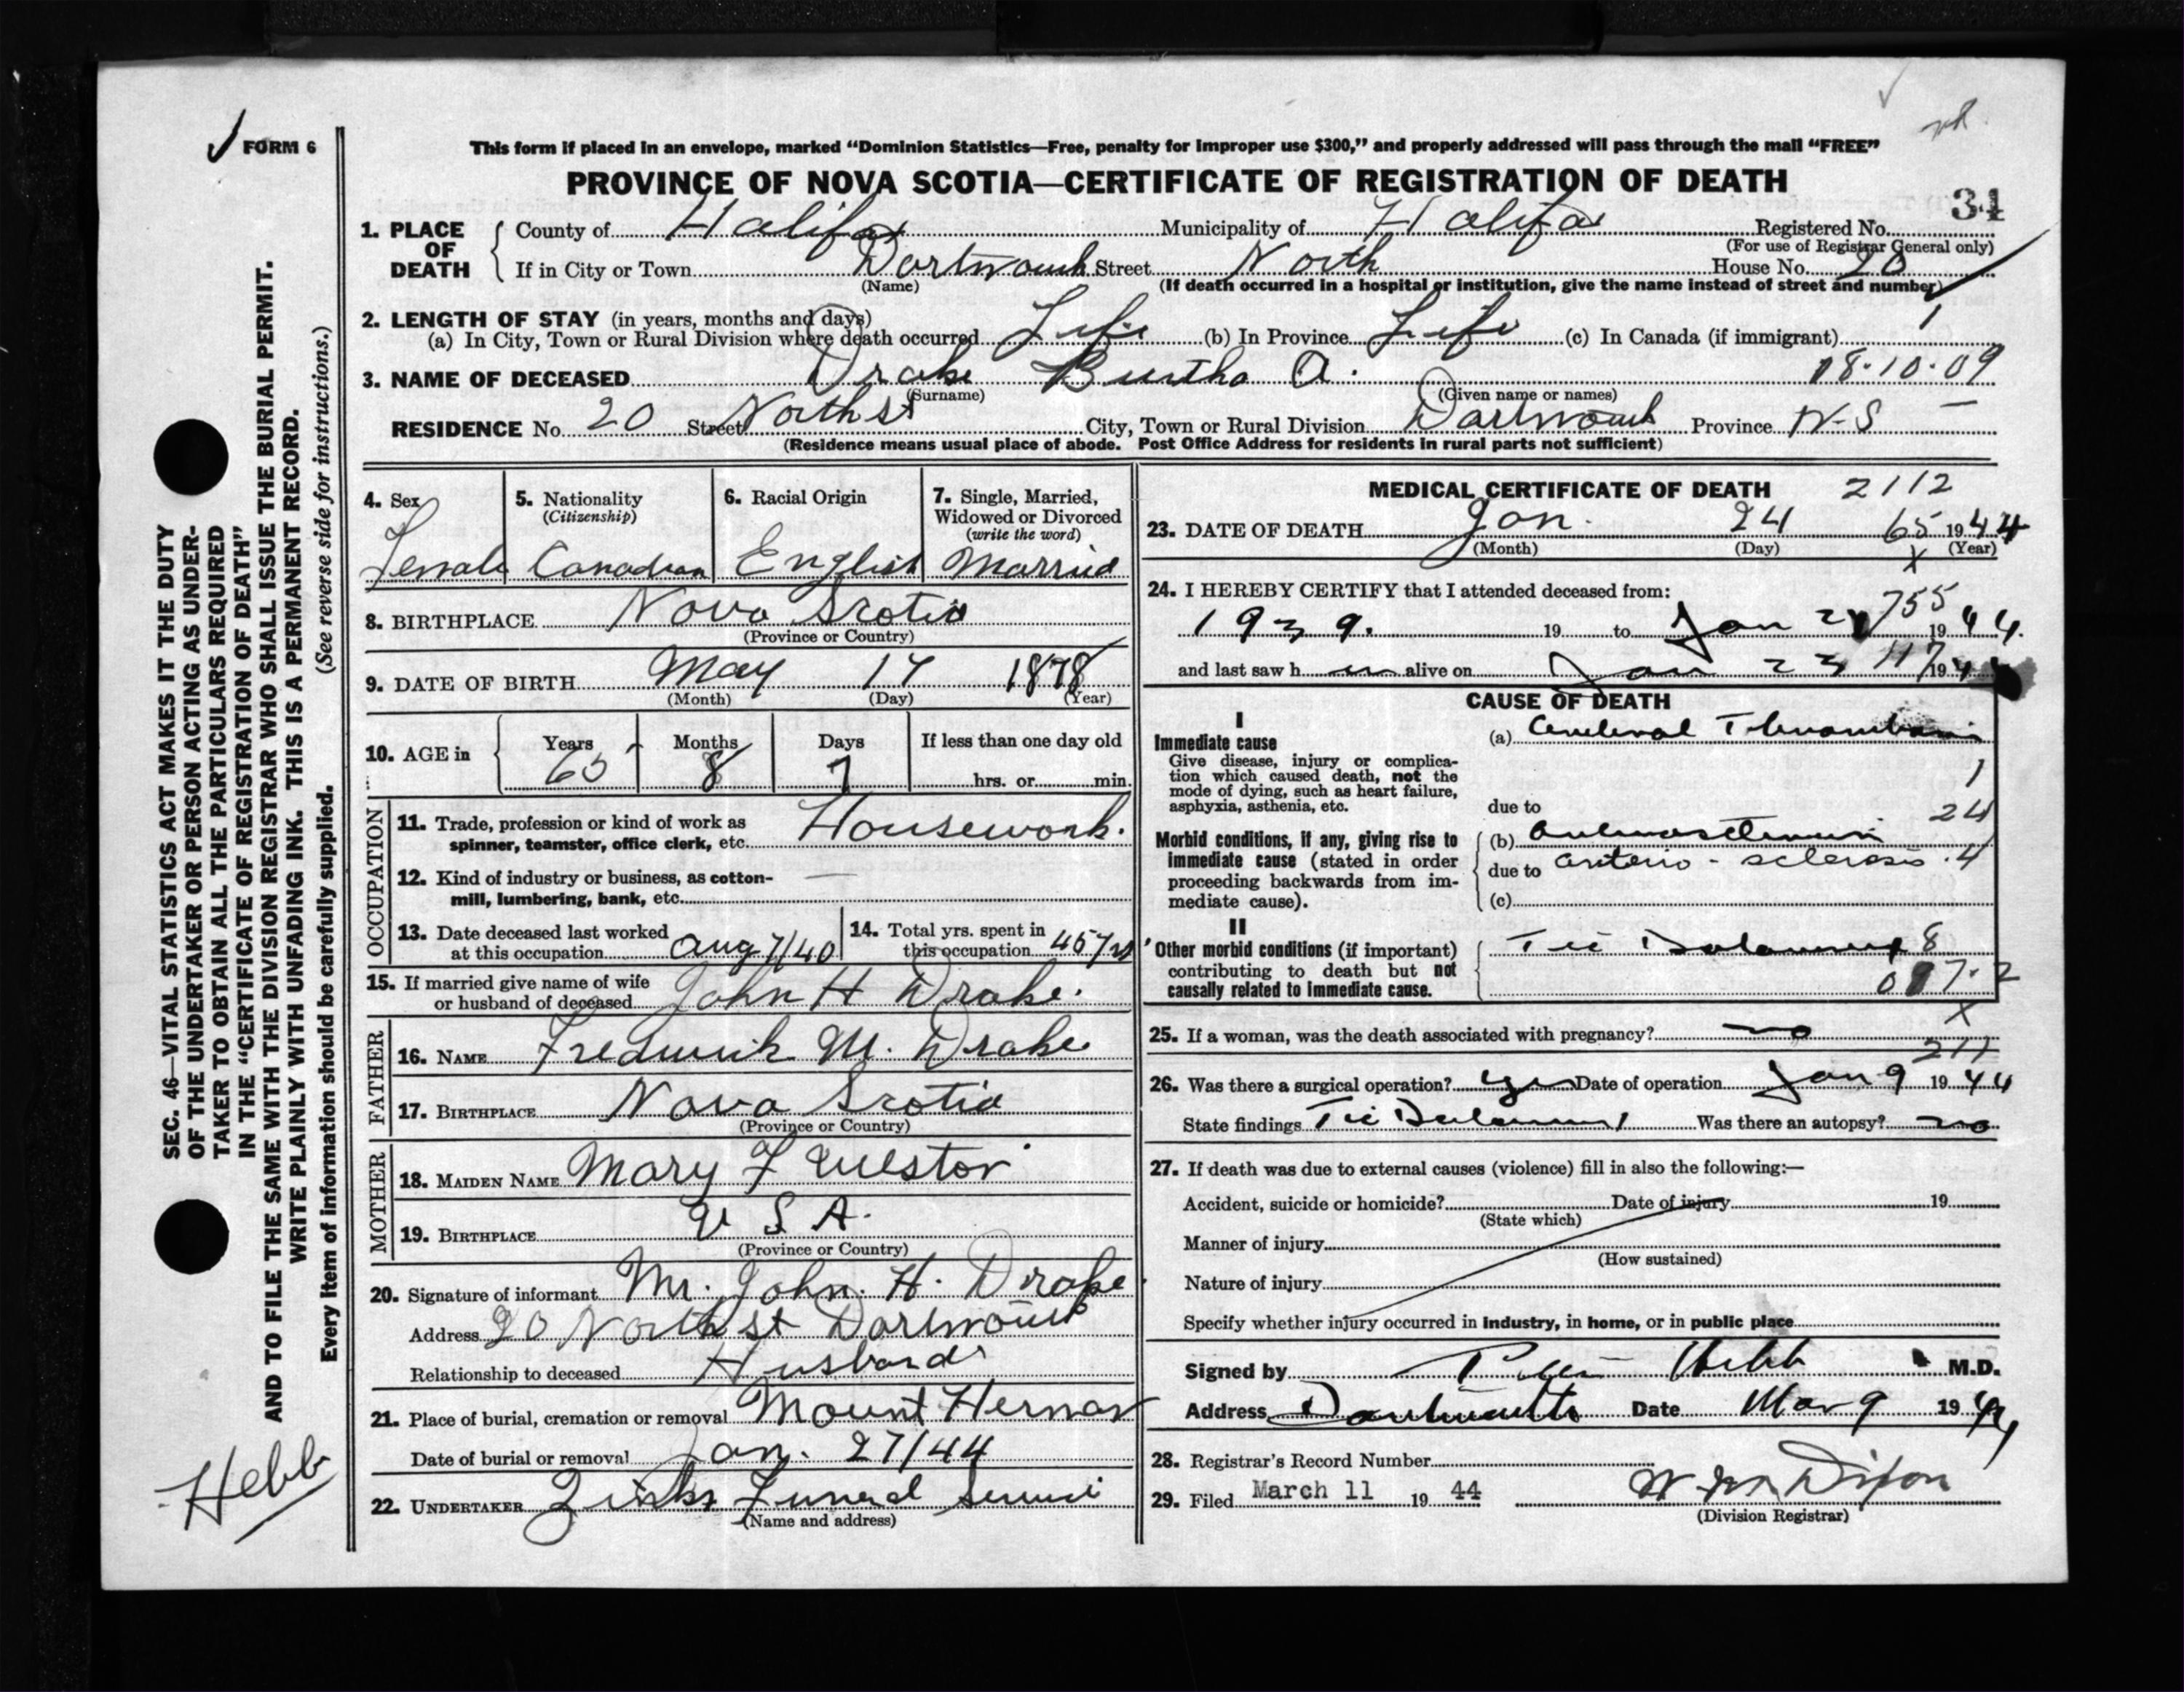 FORM 6
This form if placed in an envelope, marked “Dominion Statistics—Free, penalty for improper use $300,” and properly addressed will pass through the mail “FREE”
PROVINCE OF NOVA SCOTIA—CERTIFICATE OF REGISTRATION OF DEATH
34
1. PLACE OF DEATH
County of Halifax Municipality of Halifax Registered No.
(For use of Registrar General only)
If in City or Town Dartmouth Street North House No. 20
(Name) (If death occurred in a hospital or institution, give the name instead of street and number)
2. LENGTH OF STAY (in years, months and days)
(a) In City, Town or Rural Division where death occurred Life (b) In Province Life (c) In Canada (if immigrant) 1
3. NAME OF DECEASED Drake Bertha A. 18.10.09
(Surname) (Given name or names)
RESIDENCE No. 20 Street North st City, Town or Rural Division Dartmouth Province N-S
(Residence means usual place of abode. Post Office Address for residents in rural parts not sufficient)
4. Sex Female
5. Nationality (Citizenship) Canadian
6. Racial Origin English
7. Single, Married, Widowed or Divorced (write the word) Married
8. BIRTHPLACE Nova Scotia
(Province or Country)
9. DATE OF BIRTH May 17 1878
(Month) (Day) (Year)
10. AGE in Years 65 Months 8 Days 7 If less than one day old
hrs. or min.
OCCUPATION
11. Trade, profession or kind of work as spinner, teamster, office clerk, etc. Housework.
12. Kind of industry or business, as cotton-mill, lumbering, bank, etc. —
13. Date deceased last worked at this occupation Aug 7/40
14. Total yrs. spent in this occupation 45
15. If married give name of wife or husband of deceased John H Drake.
FATHER
16. NAME Frederick M. Drake
17. BIRTHPLACE Nova Scotia
(Province or Country)
MOTHER
18. MAIDEN NAME Mary F
19. BIRTHPLACE U S A.
(Province or Country)
20. Signature of informant Mr. John. H. Drake
Address 20 North st Dartmouth
Relationship to deceased Husband
21. Place of burial, cremation or removal Mount Hermon
Date of burial or removal Jan. 27/44
22. UNDERTAKER Zinks Funeral Service
(Name and address)
MEDICAL CERTIFICATE OF DEATH 2112
23. DATE OF DEATH Jan. 24 65 1944
(Month) (Day) (Year)
x
24. I HEREBY CERTIFY that I attended deceased from:
755
1939. 19 to Jan 1944.
and last saw h alive on Jan 23 117 1944
CAUSE OF DEATH
I
Immediate cause
Give disease, injury or complication which caused death, not the mode of dying, such as heart failure, asphyxia, asthenia, etc.
(a) Cerebral Thrombosis
1
due to
24
Morbid conditions, if any, giving rise to immediate cause (stated in order proceeding backwards from immediate cause).
(b)
due to arterio-sclerosis .4
(c)
II
Other morbid conditions (if important) contributing to death but not causally related to immediate cause.
Tic Doloureux 8
7.2
x
25. If a woman, was the death associated with pregnancy? no
211
26. Was there a surgical operation? yes Date of operation Jan 9 1944
State findings Tic Doloureux Was there an autopsy? no
27. If death was due to external causes (violence) fill in also the following:—
Accident, suicide or homicide? Date of injury 19
(State which)
Manner of injury
(How sustained)
Nature of injury
Specify whether injury occurred in industry, in home, or in public place
Signed by Hebb M.D.
Address Dartmouth Date Mar 9 1944
28. Registrar's Record Number
29. Filed March 11 19 44 Dixon
(Division Registrar)
SEC. 46—VITAL STATISTICS ACT MAKES IT THE DUTY
OF THE UNDERTAKER OR PERSON ACTING AS UNDER-
TAKER TO OBTAIN ALL THE PARTICULARS REQUIRED
IN THE “CERTIFICATE OF REGISTRATION OF DEATH”
AND TO FILE THE SAME WITH THE DIVISION REGISTRAR WHO SHALL ISSUE THE BURIAL PERMIT.
WRITE PLAINLY WITH UNFADING INK. THIS IS A PERMANENT RECORD.
Every item of information should be carefully supplied. (See reverse side for instructions.)
Hebb